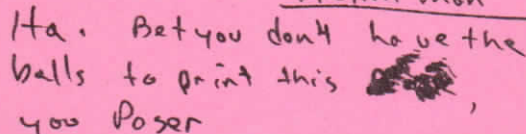 Ha. Bet you don't have the
balls to print this ,
you Poser